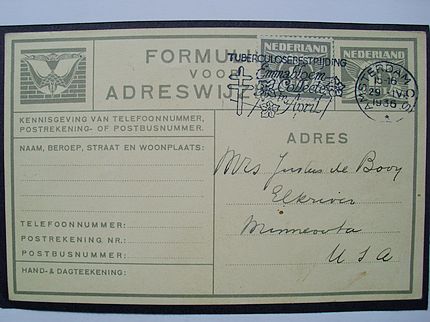 FORMULIER
VOOR
ADRESWIJZ
NEDERLAND
NEDERLAND
TUBERCULOSEBESTRIJDING
Emmabloem
Collecte
April
AMSTERDAM
29.IV
1936
KENNISGEVING VAN TELEFOONNUMMER,
POSTREKENING- OF POSTBUSNUMMER.
NAAM, BEROEP, STRAAT EN WOONPLAATS:
TELEFOONNUMMER:
POSTREKENING NR.:
POSTBUSNUMMER:
HAND- & DAGTEEKENING:
ADRES
Mrs Justus de Booy
Elkriver
Minnesota
U S A